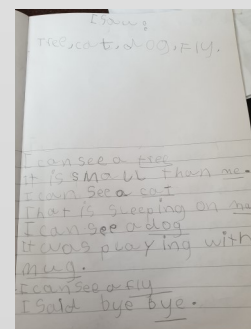 I saw:
tree, cat, dog, fly.
I can see a tree
it is small than me.
I can see a cat
that is sleeping on me
I can see a dog
it was playing with
mug.
I can see a fly
I said bye bye.